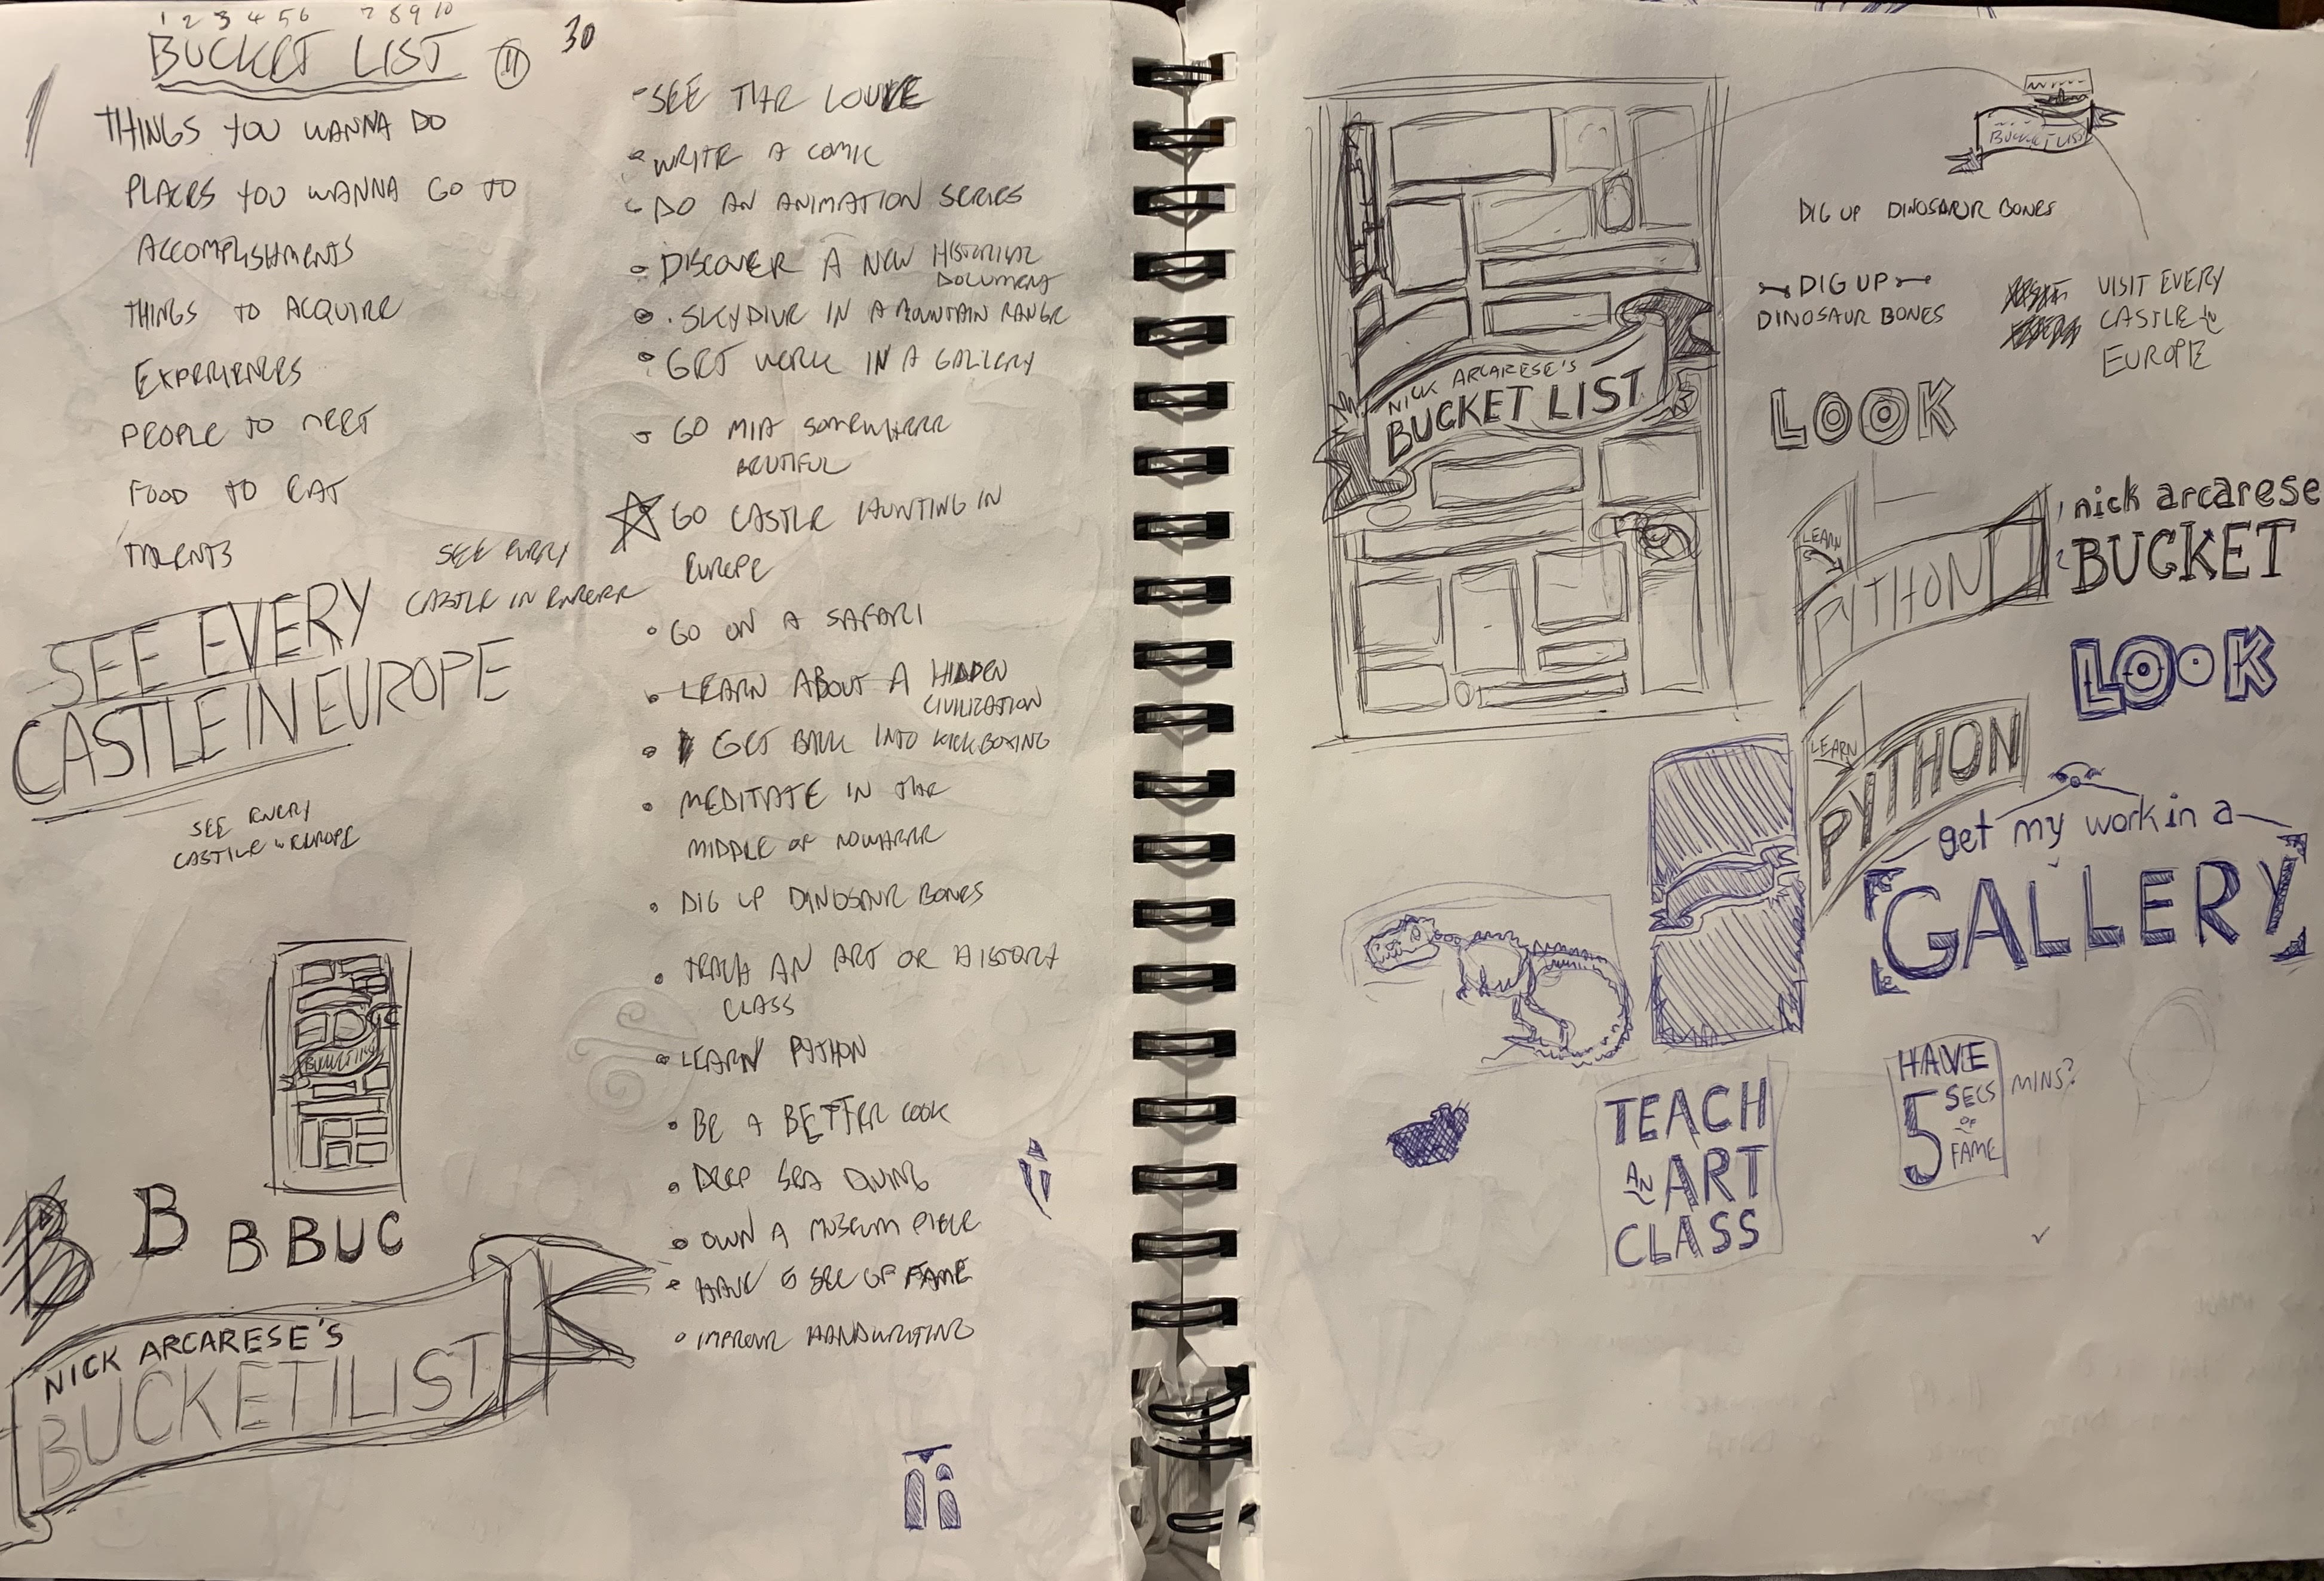 1 2 3 4 5 6 7 8 9 10
BUCKET LIST 11
30
THINGS YOU WANNA DO
PLACES YOU WANNA GO TO
ACCOMPLISHMENTS
THINGS TO ACQUIRE
EXPERIENCES
PEOPLE TO MEET
FOOD TO EAT
TALENTS
SEE EVERY
CASTLE IN EUROPE
SEE EVERY
CASTLE IN EUROPE
SEE EVERY
CASTLE IN EUROPE
BUCKET LIST
B B B BUC
NICK ARCARESE'S
BUCKET LIST
SEE THE LOUVRE
WRITE A COMIC
DO AN ANIMATION SERIES
DISCOVER A NEW HISTORICAL
DOCUMENT
SKYDIVE IN A MOUNTAIN RANGE
GET WORK IN A GALLERY
GO MIA SOMEWHERE
BEUTIFUL
GO CASTLE HUNTING IN
EUROPE
GO ON A SAFARI
LEARN ABOUT A HIDDEN
CIVILIZATION
GET BACK INTO KICKBOXING
MEDITATE IN THE
MIDDLE OF NOWHERE
DIG UP DINOSAUR BONES
TEACH AN ART OR HISTORY
CLASS
LEARN PYTHON
BE A BETTER COOK
DEEP SEA DIVING
OWN A MUSEUM PIECE
HAVE 5 SEC OF FAME
IMPROVE HANDWRITING
NICK ARCARESE'S
BUCKET LIST
BUCKET LIST
DIG UP DINOSAUR BONES
DIG UP
DINOSAUR BONES
VISIT EVERY
CASTLE IN
EUROPE
LOOK
nick arcarese
BUCKET
LEARN
PYTHON
LOOK
LEARN
PYTHON
get my work in a
GALLERY
TEACH
AN ART
CLASS
HAVE
5 SECS MINS?
OF
FAME